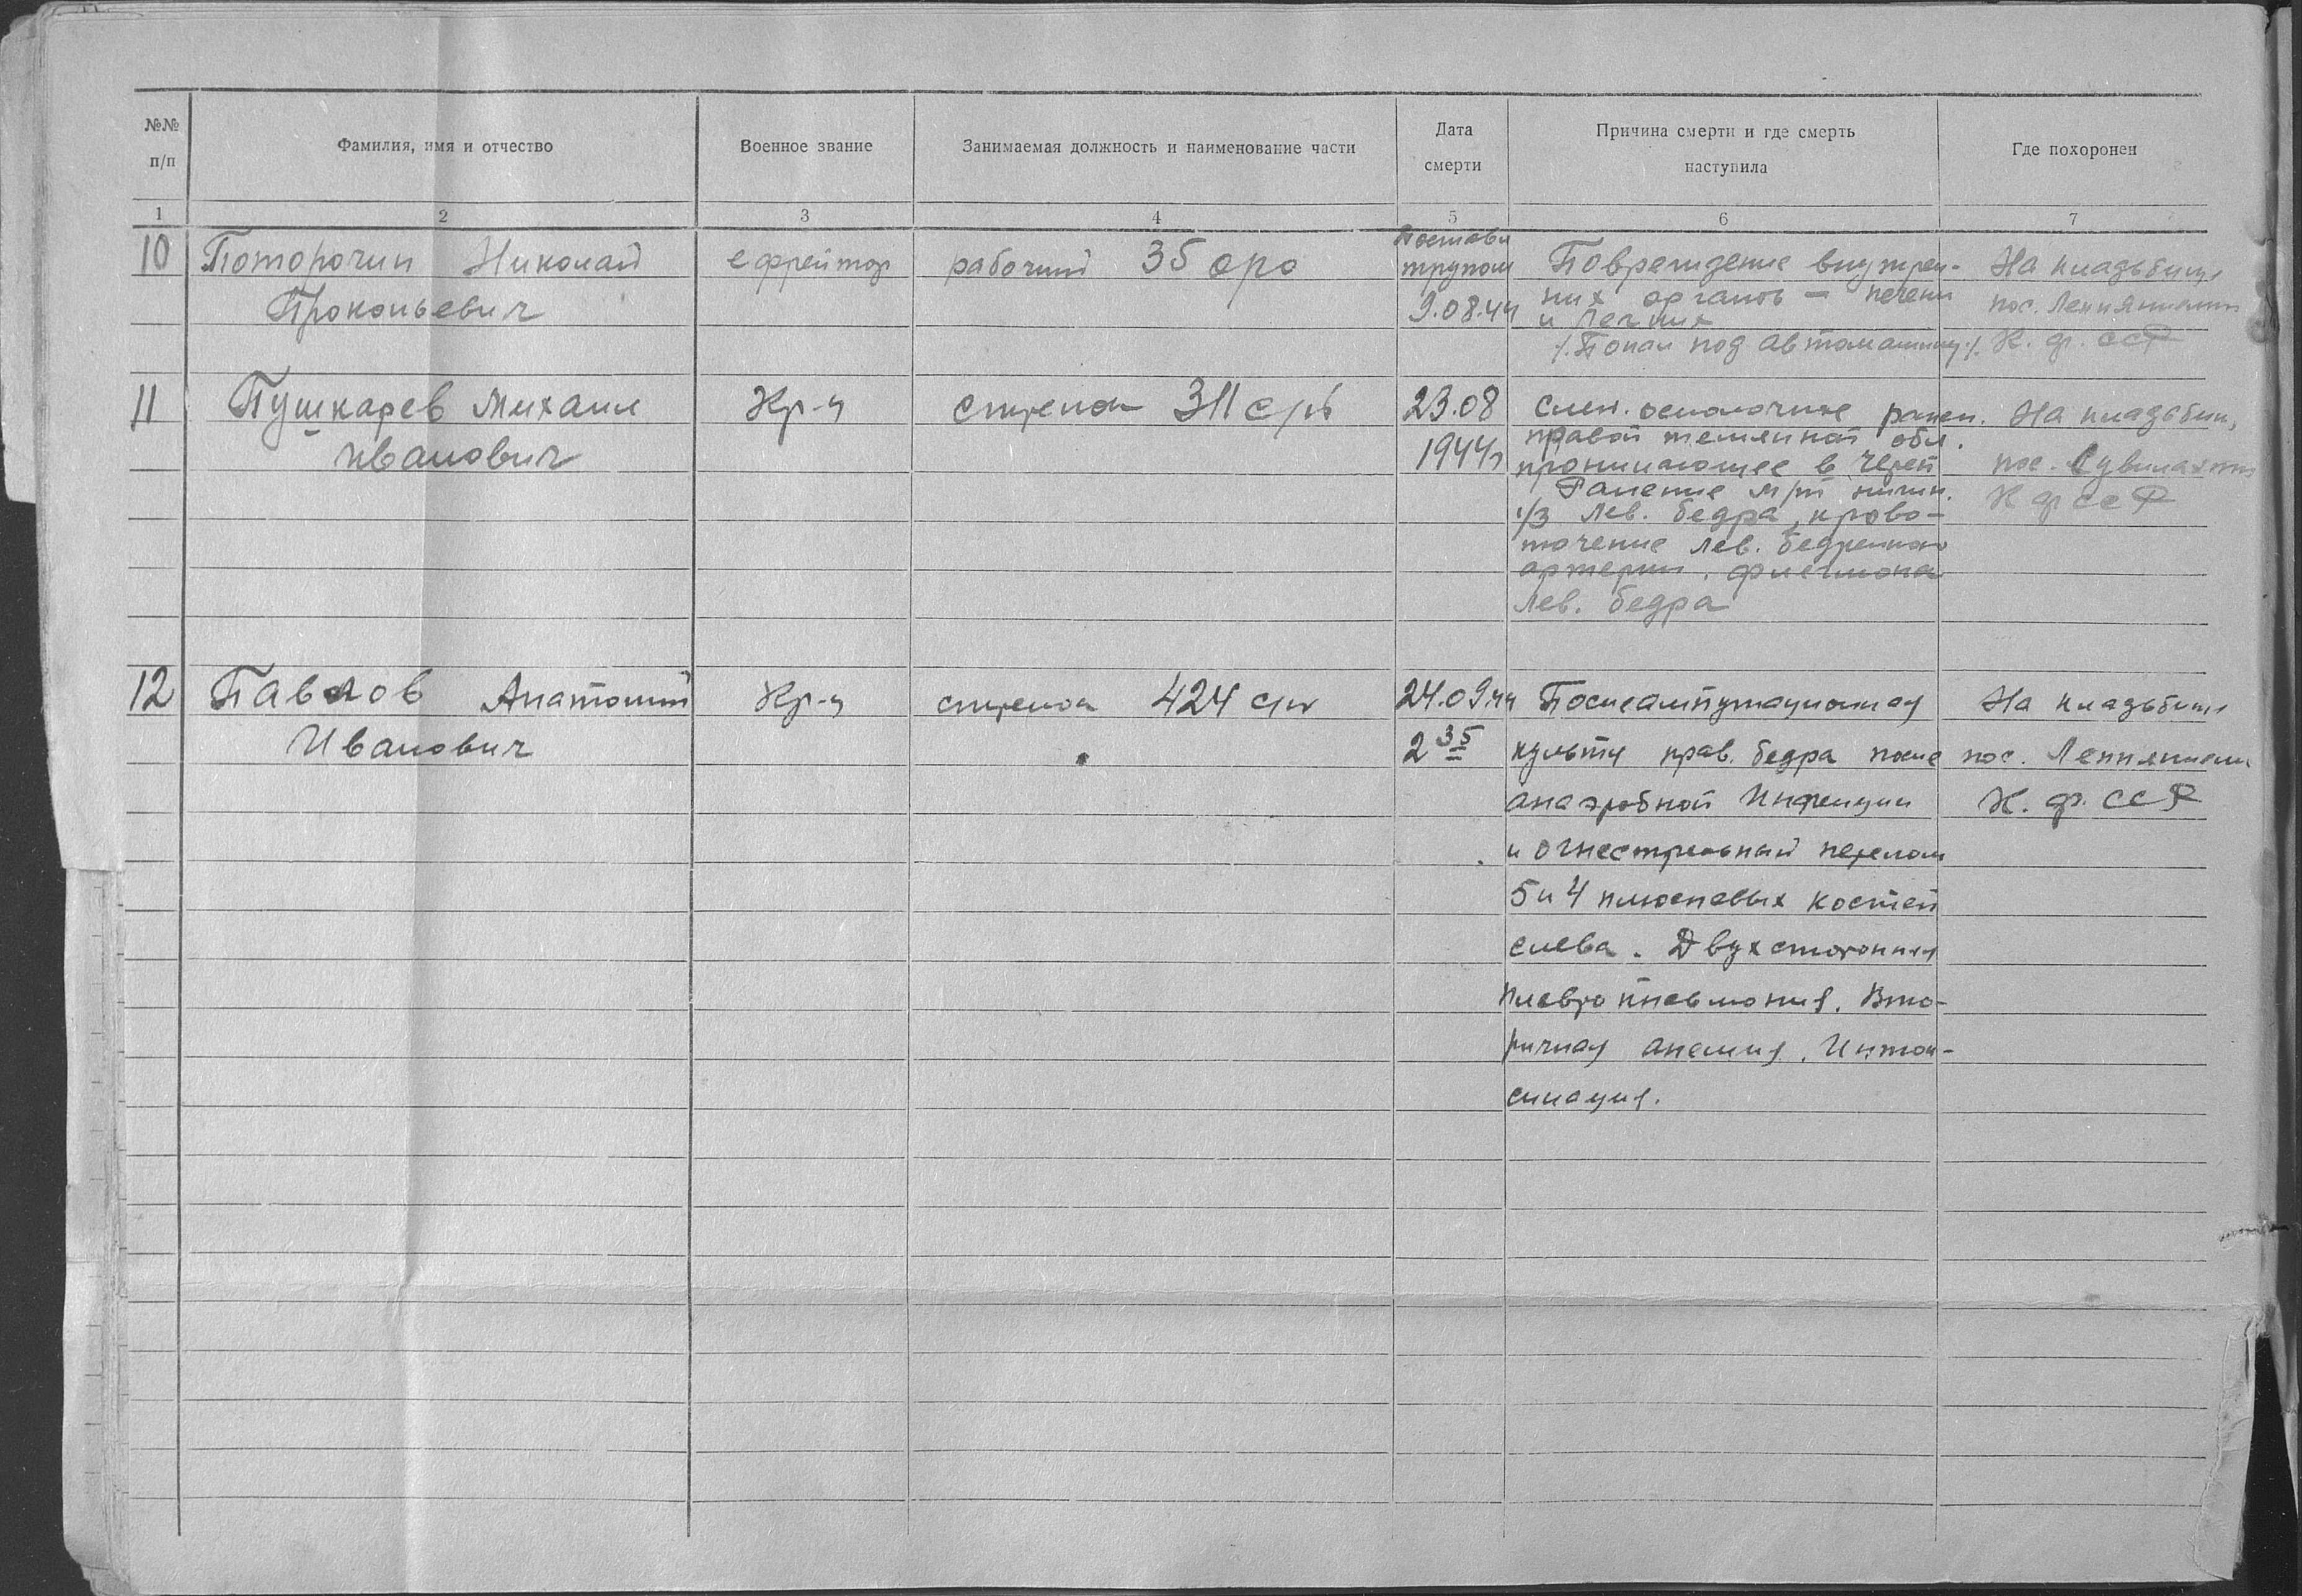 №№ п/п
Фамилия, имя и отчество
Военное звание
Занимаемая должность и наименование части
Дата смерти
Причина смерти и где смерть наступила
Где похоронен
1 2 3 4 5 6 7
10
Поторочин Николай
Прокопьевич
ефрейтор
рабочий 35 оро
трупом
9.08.44
Повреждение внутрен-
них органов — печени
и легких
/. Попал под автомашину /.
На кладбище
пос.
К. ф. ССР
11
Пушкарев Михаил
Иванович
Кр-ц
стрелок
23.08
1944г
слеп. осколочное ранен.
правой теменной обл.
проникающее в череп
Ранение м/т нижн.
1/3 лев. бедра, крово-
течение лев. бедренной
артерии, флегмона
лев. бедра
На кладбищ,
пос.
К ф ССР
12
Павлов Анатолий
Иванович
Кр-ц
стрелок 424 сп
24.09.44
2 35
Послеампутационная
культя прав. бедра после
анаэробной инфекции
и огнестрельный перелом
5 и 4 плюсневых костей
слева. Двухсторонняя
плевропневмония. Вто-
ричная анемия. Инток-
сикация.
На кладбище
пос.
К. ф. ССР